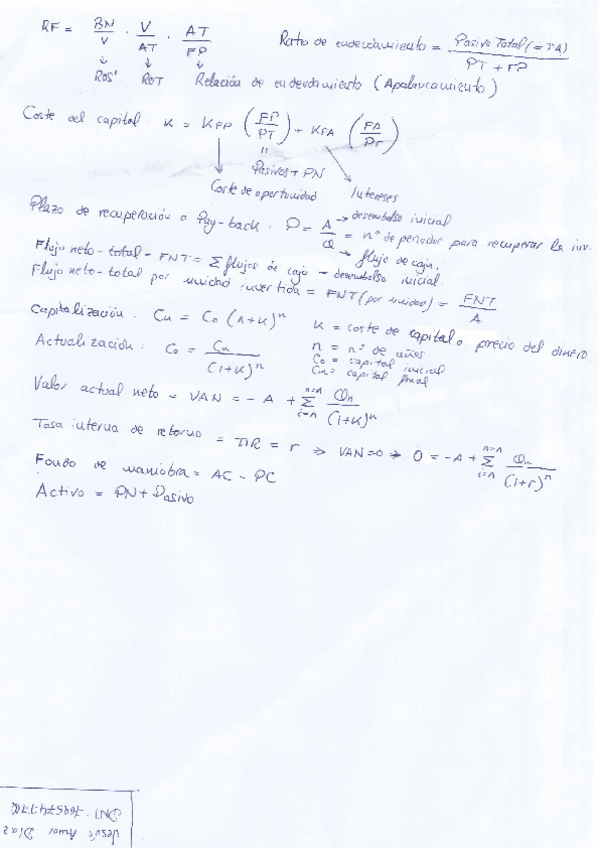 RF = BN/V · V/AT · AT/FP
Ratio de endeudamiento = Pasivo Total (= FA) / PT + FP
↓ ↓ ↓
ROS' ROT Relación de endeudamiento (Apalancamiento)
Coste del capital: K = KFP (FP/PT) + KFA (FA/PT)
=
Pasivos + PN
Coste de oportunidad Intereses
Plazo de recuperación o Pay-back: P = A/Q = nº de periodos para recuperar la inv.
→ desembolso inicial
→ flujo de caja.
Flujo neto-total = FNT = Σ flujos de caja - desembolso inicial.
Flujo neto-total por unidad invertida = FNT (por unidad) = FNT/A
Capitalización: Cn = Co (1+K)^n
K = coste de capital o precio del dinero.
Actualización: Co = Cn/(1+K)^n
n = nº de años
Co = capital inicial
Cn = capital final
Valor actual neto = VAN = - A + Σ (n=n, i=1) Qn/(1+K)^n
Tasa interna de retorno = TIR = r ⇒ VAN=0 → 0 = -A + Σ (n=n, i=1) Qn/(1+r)^n
Fondo de maniobra = AC - PC
Activo = PN + Pasivo
Jesús Díaz
DNI